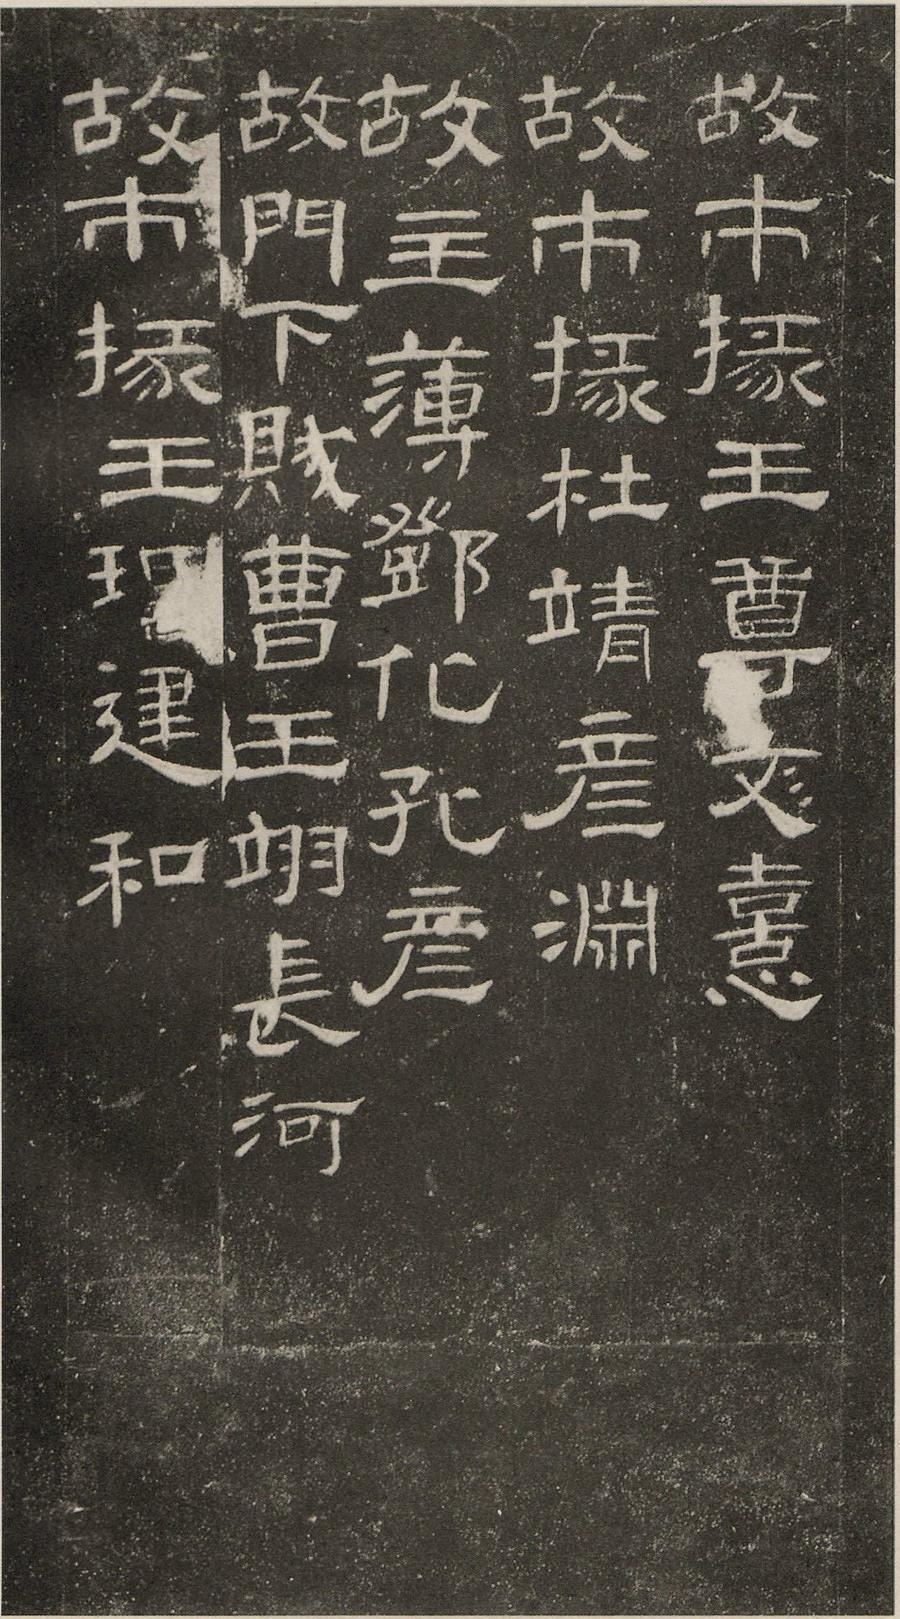 故市掾王尊文憙
故市掾杜靖彦淵
故主薄鄧化孔彦
故門下賊曹王翊長河
故市掾王玾建和